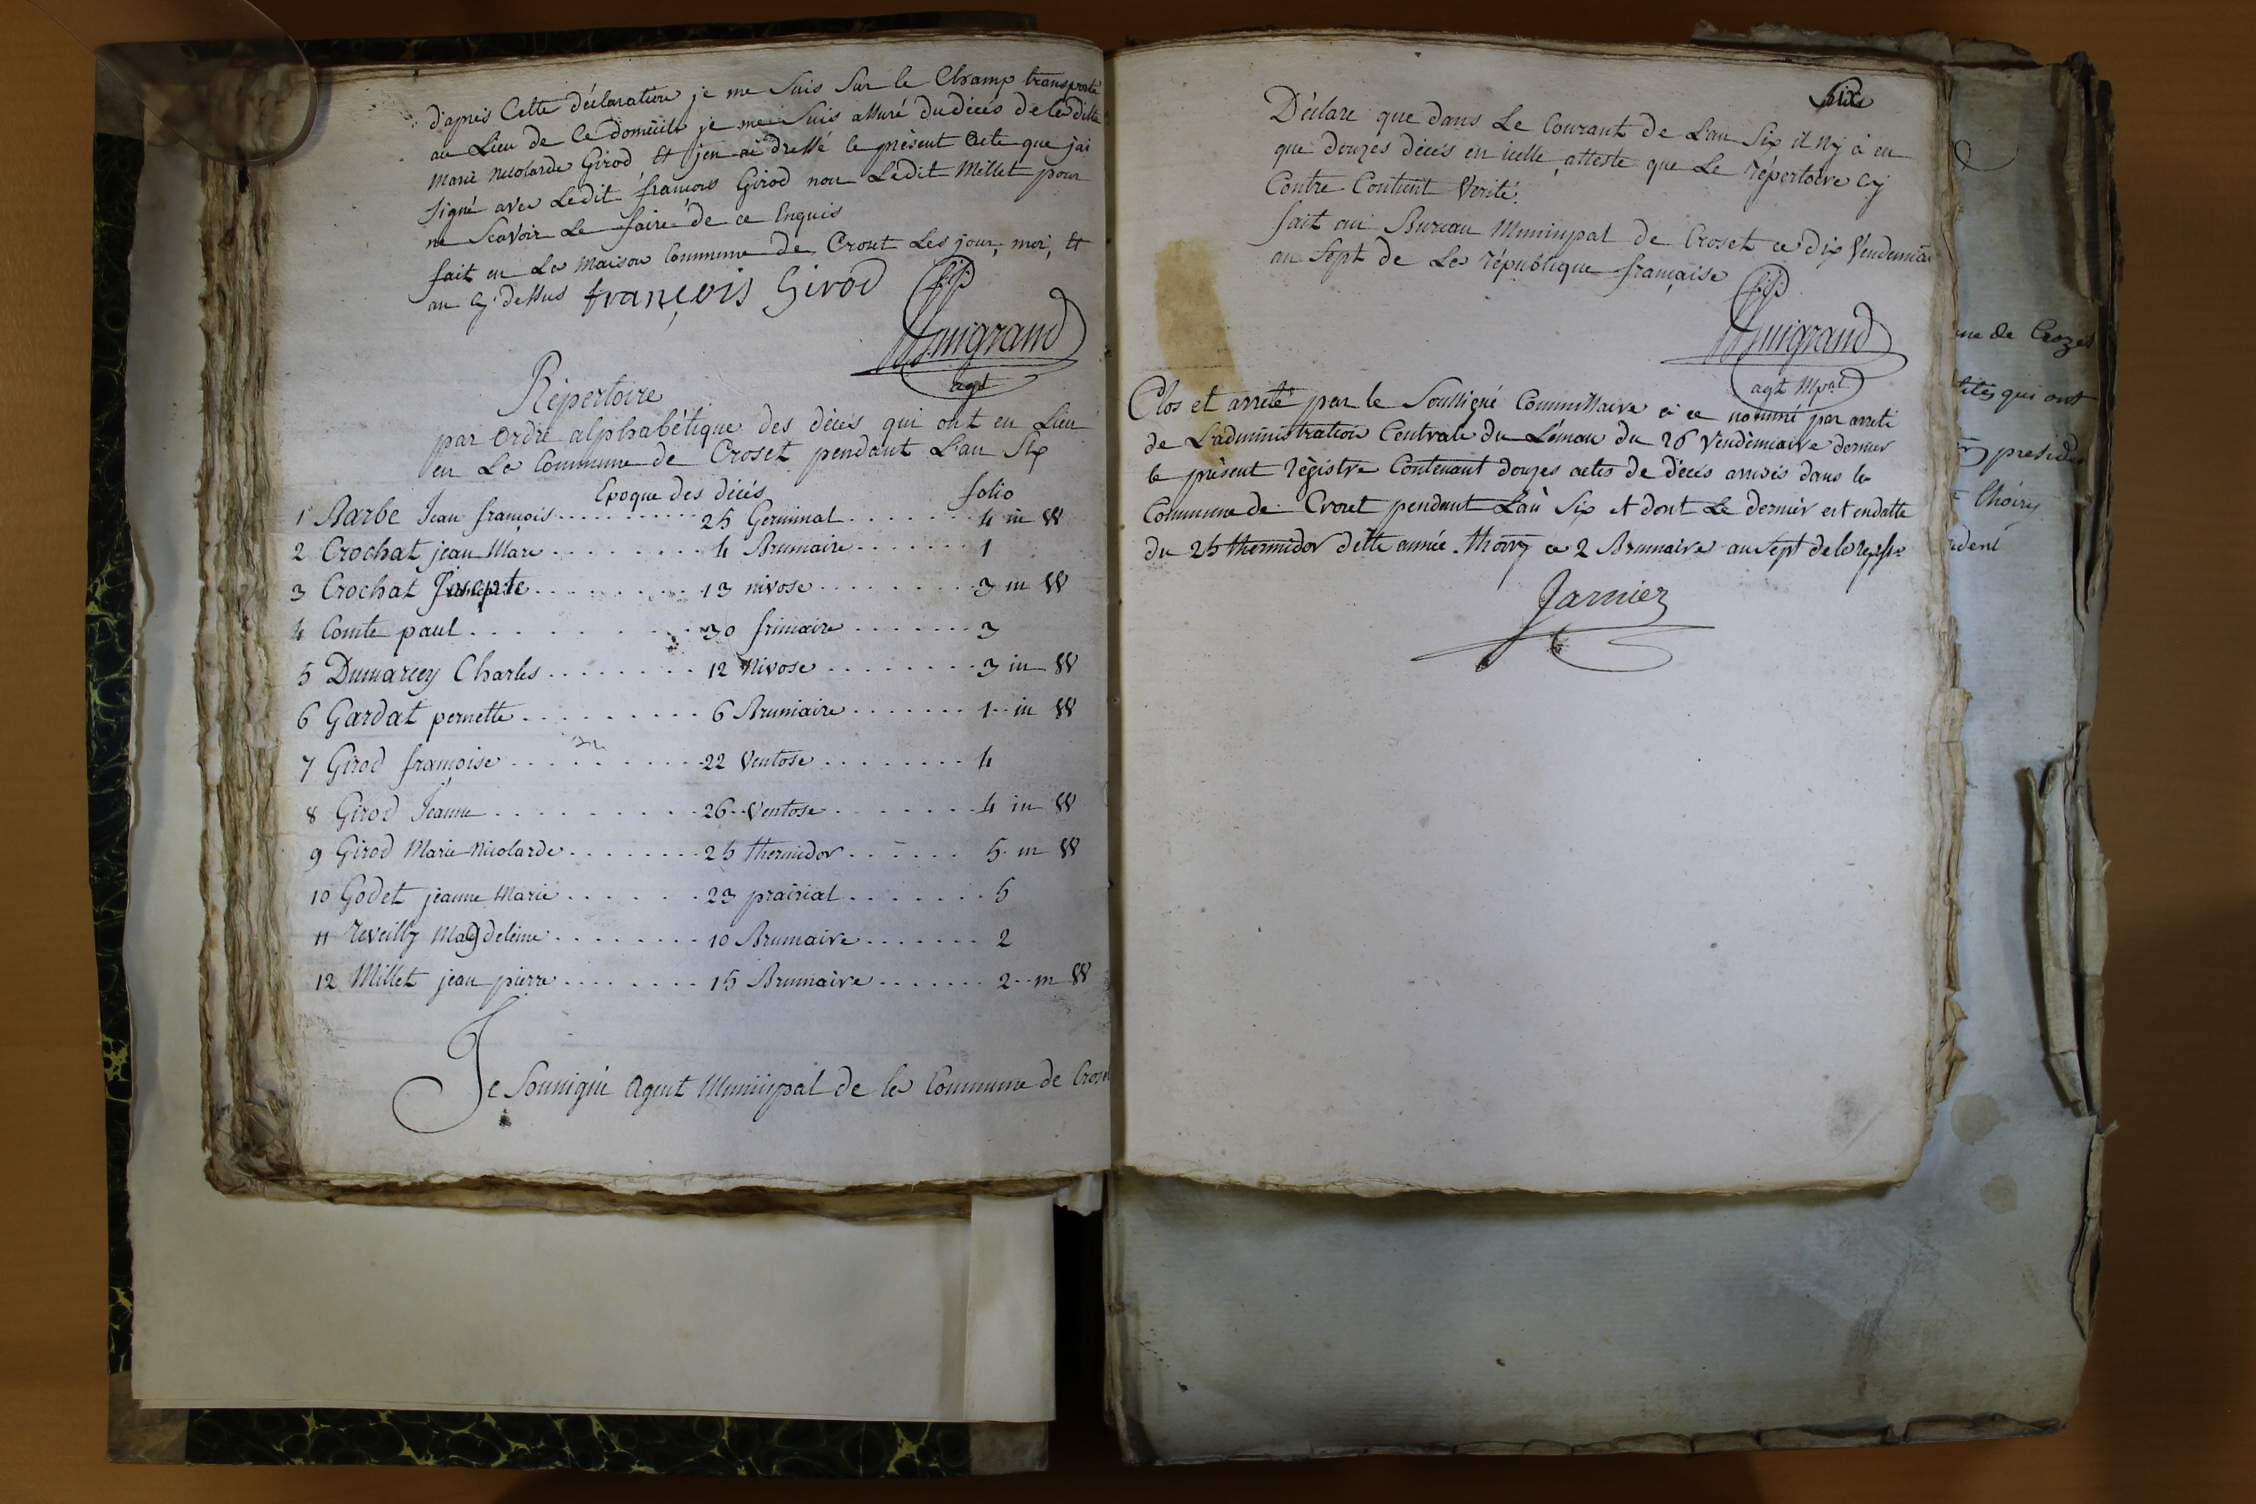 d'apres Cette déclaration je me Suis Sur le Champ transporté
au Lieu de Ce domicile je me Suis assuré du décés de la ditte
Marie Nicolarde Girod et jen ai dressé le présent acte que jai
Signé avec Ledit françois Girod non Ledit Millet pour
ne Scavoir Le faire de ce Enquis
fait en La Maison Commune de Crozet Les jour, moi, et
an Cy dessus françois Girod
agt
Répertoire
par ordre alphabétique des décés qui ont eu Lieu
en La Commune de Croset pendant L'an Six
Epoque des décés folio
1 Barbe Jean françois . . . . . . . . . . 25 Germinal . . . . . . . 4 in Vº
2 Crochat jean Marc . . . . . . . . 4 Brumaire . . . . . . . 1
3 Crochat . . . . . . . . 13 nivose . . . . . . . . 3 in Vº
4 Comte paul . . . . . . . . . . 30 frimaire . . . . . . . 3
5 Dumarcey Charles . . . . . . . . 12 Nivose . . . . . . . . 3 in Vº
6 Gardat pernette . . . . . . . . . 6 Brumaire . . . . . . . 1 in Vº
7 Girod françoise . . . . . . . . . 22 Ventose . . . . . . . . 4
8 Girod Jeanne . . . . . . . . . . 26 Ventose . . . . . . . . 4 in Vº
9 Girod Marie Nicolarde . . . . . . . 25 thermidor . . . . . . 5 in Vº
10 Godet jeanne Marie . . . . . . 23 prairial . . . . . . . 5
11 Reveilly Magdeleine . . . . . . . . 10 Brumaire . . . . . . . 2
12 Millet jean pierre . . . . . . . . 15 Brumaire . . . . . . . 2 in Vº
Je Soussigné Agent Municipal de la Commune de
Six
Déclare que dans Le Courant de L'an Six il N'y à eu
que douzes décés en icelle, atteste que Le répertoire cy
Contre Contient Verité.
fait au Bureau Municipal de Croset ce dix Vendemia
an Sept de La république française
agt Mpal
Clos et arreté par le Soussigné Commissaire à ce nommé par arreté
de L'administration Centrale du Léman du 26 Vendémiaire dernier
le présent régistre Contenant douzes actes de décés arrivés dans la
Commune de Crozet pendant L'an Six et dont Le dernier est en datte
du 25 thermidor ditte année. thoiry ce 2 Brumaire an Sept de la rep.
Jarnier
me de Crozet
qui ont
preside
thoiry
ident